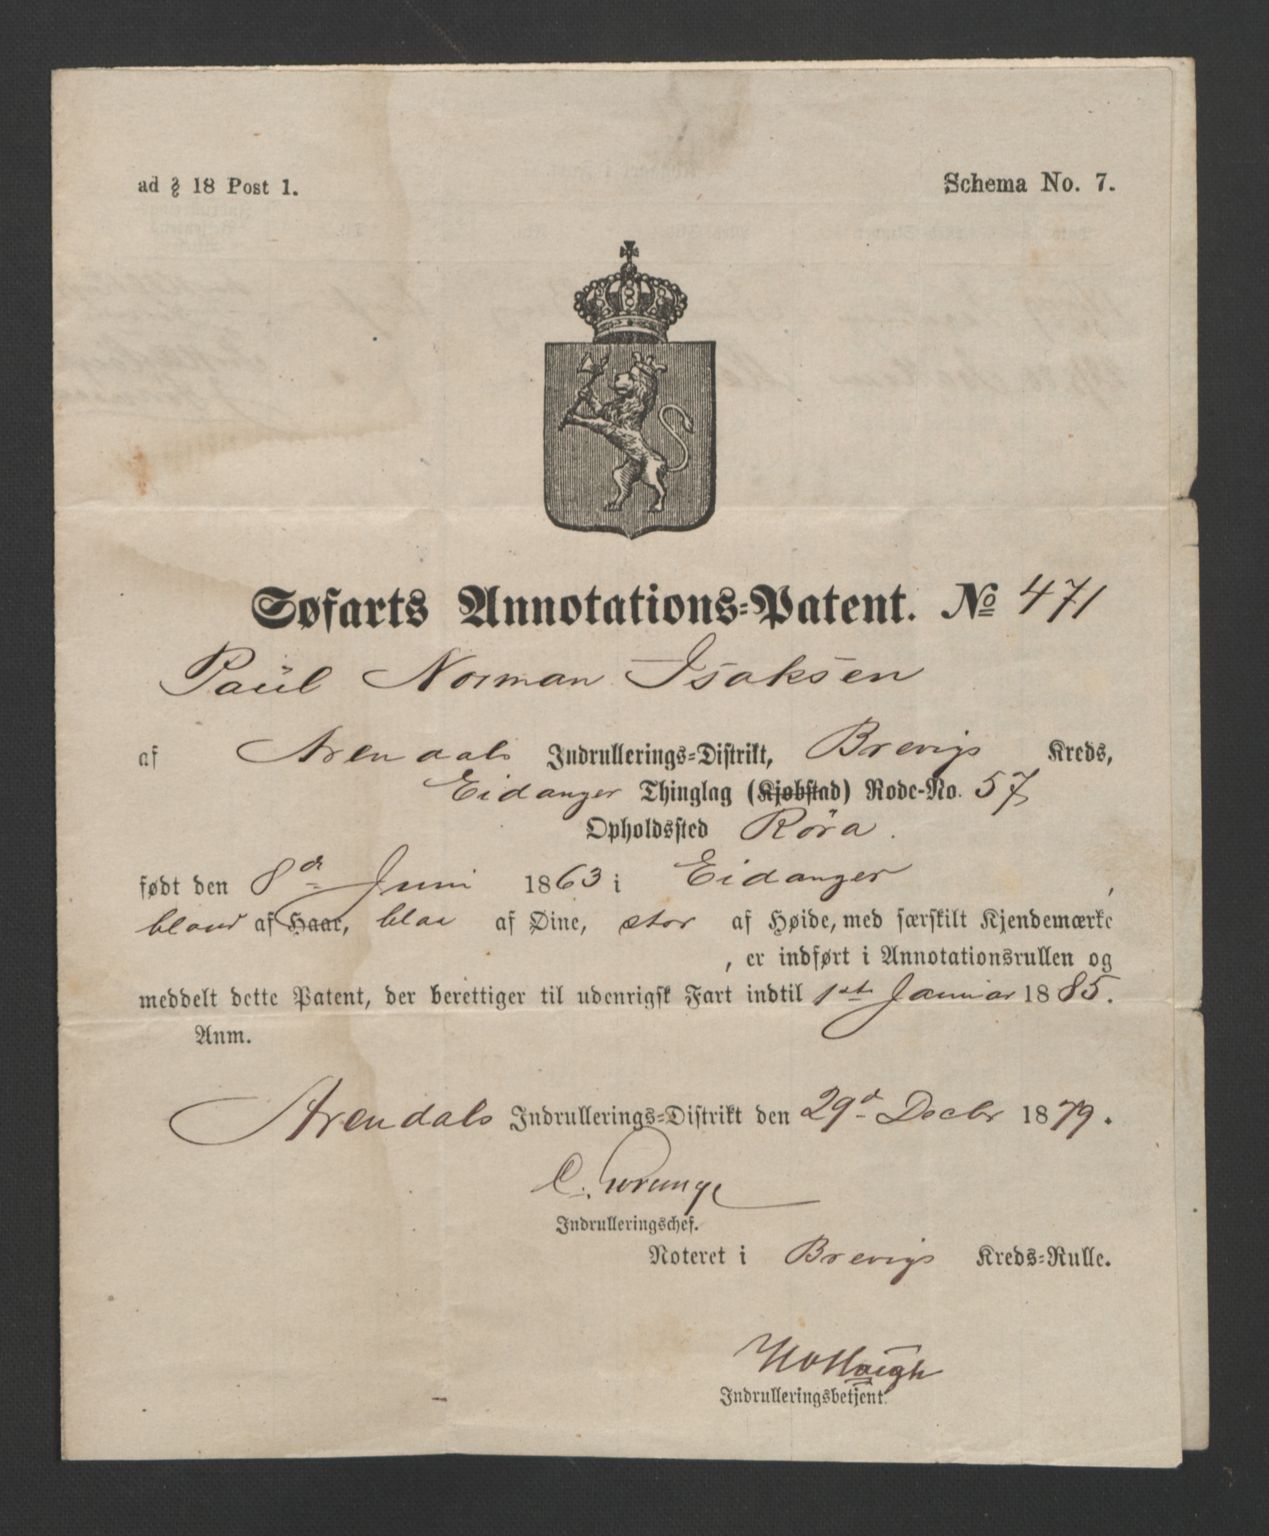 ad § 18 Post 1.
Schema No. 7.
Søfarts Annotations-Patent. No 471
Paul Norman Isaksen
af Arendals Indrullerings-Distrikt, Brevigs Kreds,
Eidanger Thinglag (Kjøbstad) Rode-No. 57
Opholdssted Röra.
født den 8de Juni 1863 i Eidanger,
bland af Haar, blaa af Øine, stor af Høide, med særskilt Kjendemærke
, er indført i Annotationsrullen og
meddelt dette Patent, der berettiger til udenrigsk Fart indtil 1st Januar 1885.
Anm.
Arendals Indrullerings-Distrikt den 29d Decbr 1879.
C.
Indrulleringschef.
Noteret i Brevigs Kreds-Rulle.
Indrulleringsbetjent.